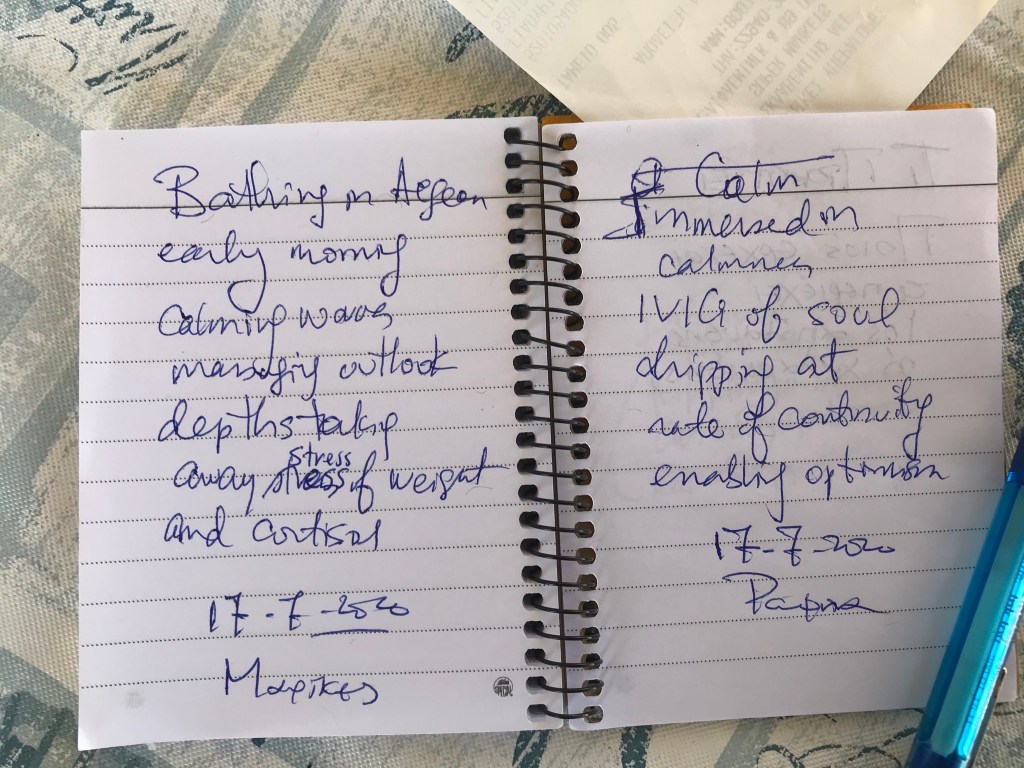 Bathing in Aegean
early morning
Calming waves
managing outlook
depths taking
away stress of weight
stress
and cortisol
17-7-2020
Calm
immersed in
calmness
IVIG of soul
dripping at
rate of continuity
enabling optimism
17-7-2020